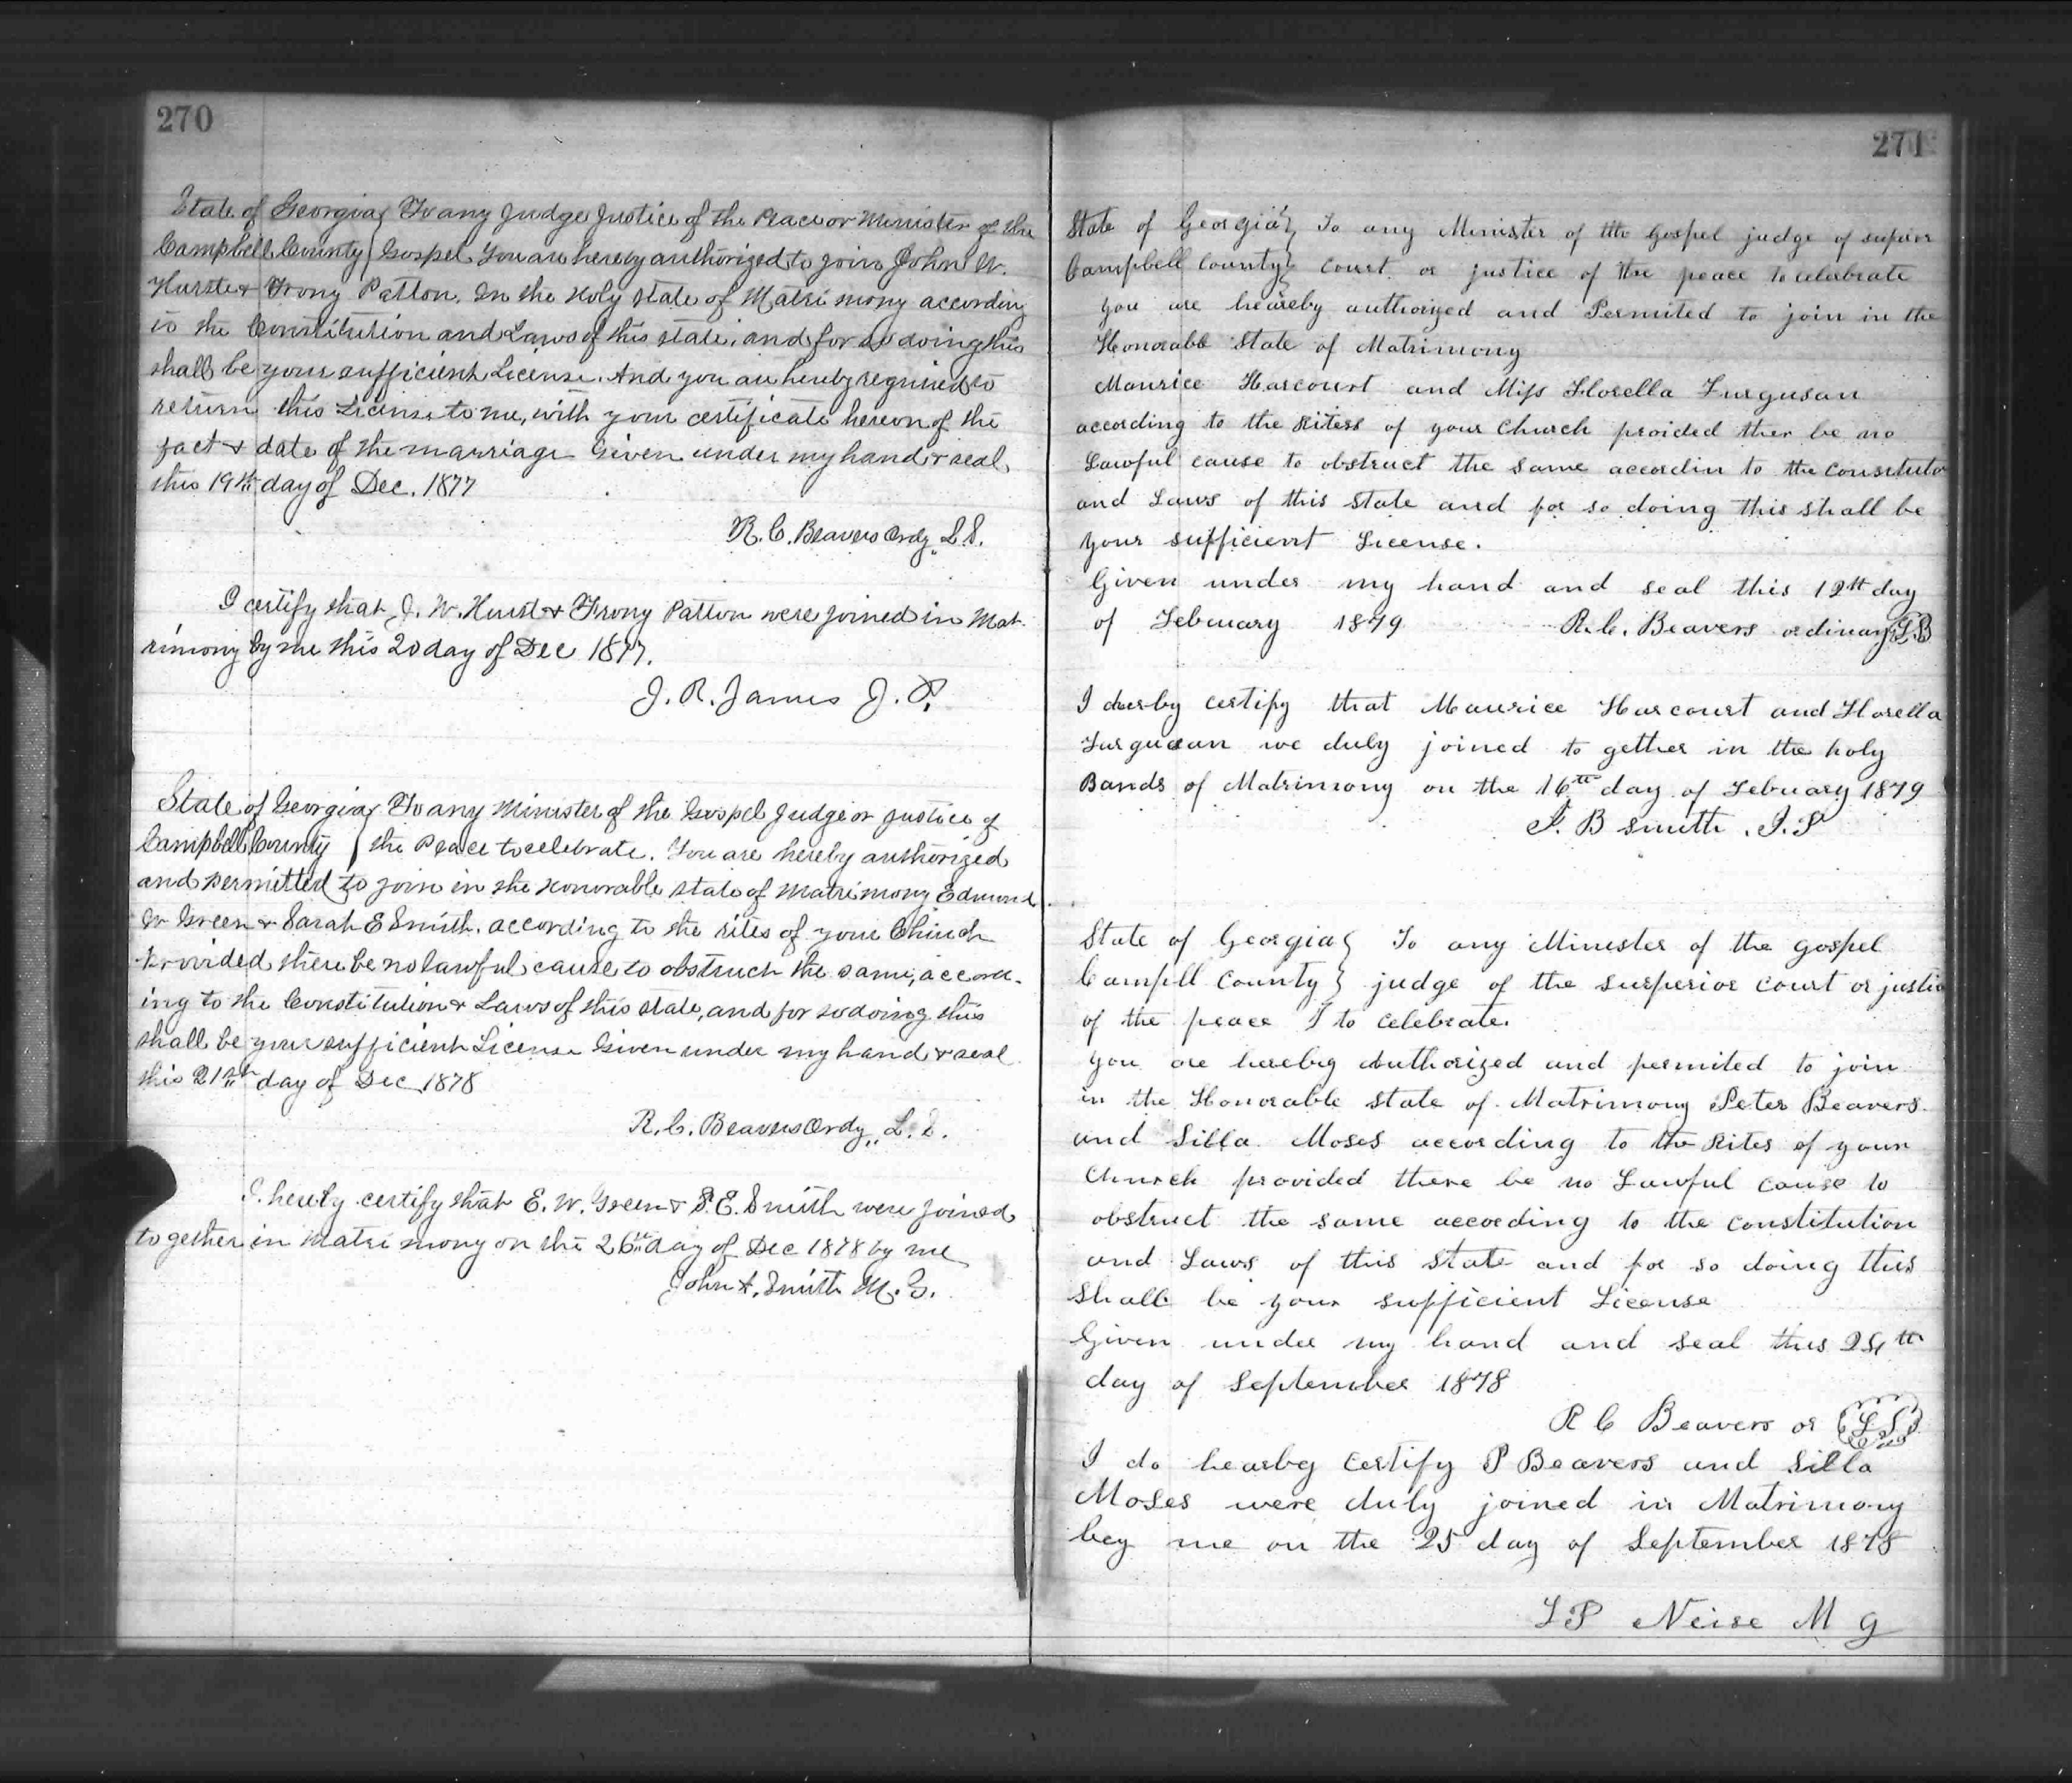 270
State of Georgia } To any Judge Justice of the Peace or Minister of the
Campbell County } Gospel. You are hereby authorized to join John W.
Hurst & Frony Patton. In the Holy state of Matrimony according
to the Constitution and Laws of this state, and for so doing this
shall be your sufficient License. And you are hereby required to
return this License to me, with your certificate hereon of the
fact & date of the marriage Given under my hand & seal,
this 19th day of Dec. 1877
R. C. Beavers Ordy. L.S.
I certify that J. W. Hurst & Frony Patton were joined in Mat-
rimony by me this 20 day of Dec 1877.
J. R. James J. P.
State of Georgia } To any Minister of the Gospel Judge or Justice of
Campbell County } the Peace to celebrate. You are hereby authorized
and permitted to join in the Honorable state of Matrimony Edmond
W Green & Sarah E Smith. according to the rites of your Church
Provided there be no lawful cause to obstruct the same, accord-
ing to the Constitution & Laws of this state, and for so doing this
shall be your sufficient License Given under my hand & seal
this 21st day of Dec 1878
R. C. Beavers Ordy,, L. S.
I hereby certify that E. W. Green & S. E. Smith were joined
together in Matrimony on the 26th day of Dec 1878 by me
John Smith M. G.
271
State of Georgia } To any Minister of the Gospel judge of superior
Campbell County } court or justice of the peace to celebrate
you are heareby authorized and Permited to join in the
Honorable State of Matrimony
Maurice Harcourt and Miss Florella Furgusan
according to the Ritess of your Church proided ther be no
Lawful cause to obstruct the same accordin to the Constituto
and Laws of this State and for so doing this shall be
your sufficient License.
Given under my hand and seal this 12th day
of February 1879 R. C. Beavers ordinary
I certify that Maurice Harcourt and Florella
Furgusan we duly joined to gether in the holy
Bands of Matrimony on the 16th day of February 1879
B Smith. J. P
State of Georgia } To any Minister of the gospel
Campell County } judge of the surperior court or justic
of the peace to celebrate.
you are hereby Authorized and permited to join
in the Honorable State of Matrimony Peter Beavers
and Silla Moses according to the Rites of your
Church provided there be no Lawful cause to
obstruct the same according to the constitution
and Laws of this State and for so doing this
Shall be your sufficient License
Given under my hand and seal this 24th
day of September 1878
R C Beavers or L S
I do hearby certify P Beavers and Silla
Moses were duly joined in Matrimony
bey me on the 25 day of September 1878
L P Neise M G